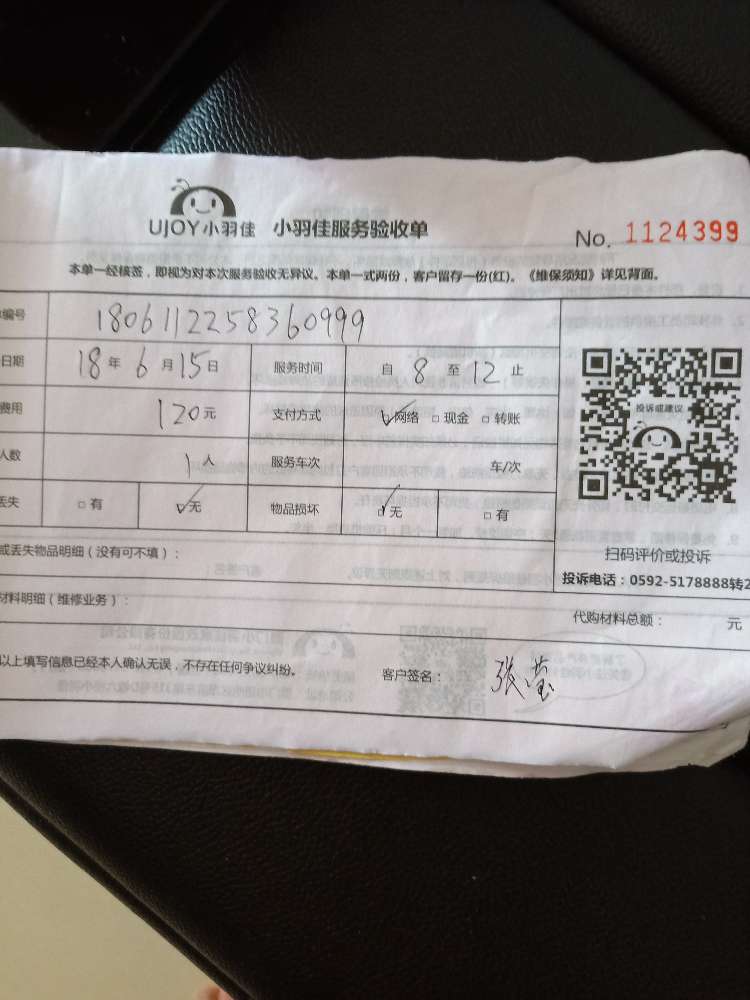 UJOY小羽佳 小羽佳服务验收单
No. 1124399
本单一经核签，即视为对本次服务验收无异议。本单一式两份，客户留存一份(红)。《维保须知》详见背面。
编号 1806112258360999
日期 18年6月15日 服务时间 自8至12止
费用 120元 支付方式 ☑网络 □现金 □转账
人数 1人 服务车次 车/次
丢失 □有 ☑无 物品损坏 ☑无 □有
投诉或建议
扫码评价或投诉
投诉电话：0592-5178888转2
或丢失物品明细（没有可不填）：
材料明细（维修业务）： 代购材料总额： 元
以上填写信息已经本人确认无误，不存在任何争议纠纷。 客户签名： 张莹